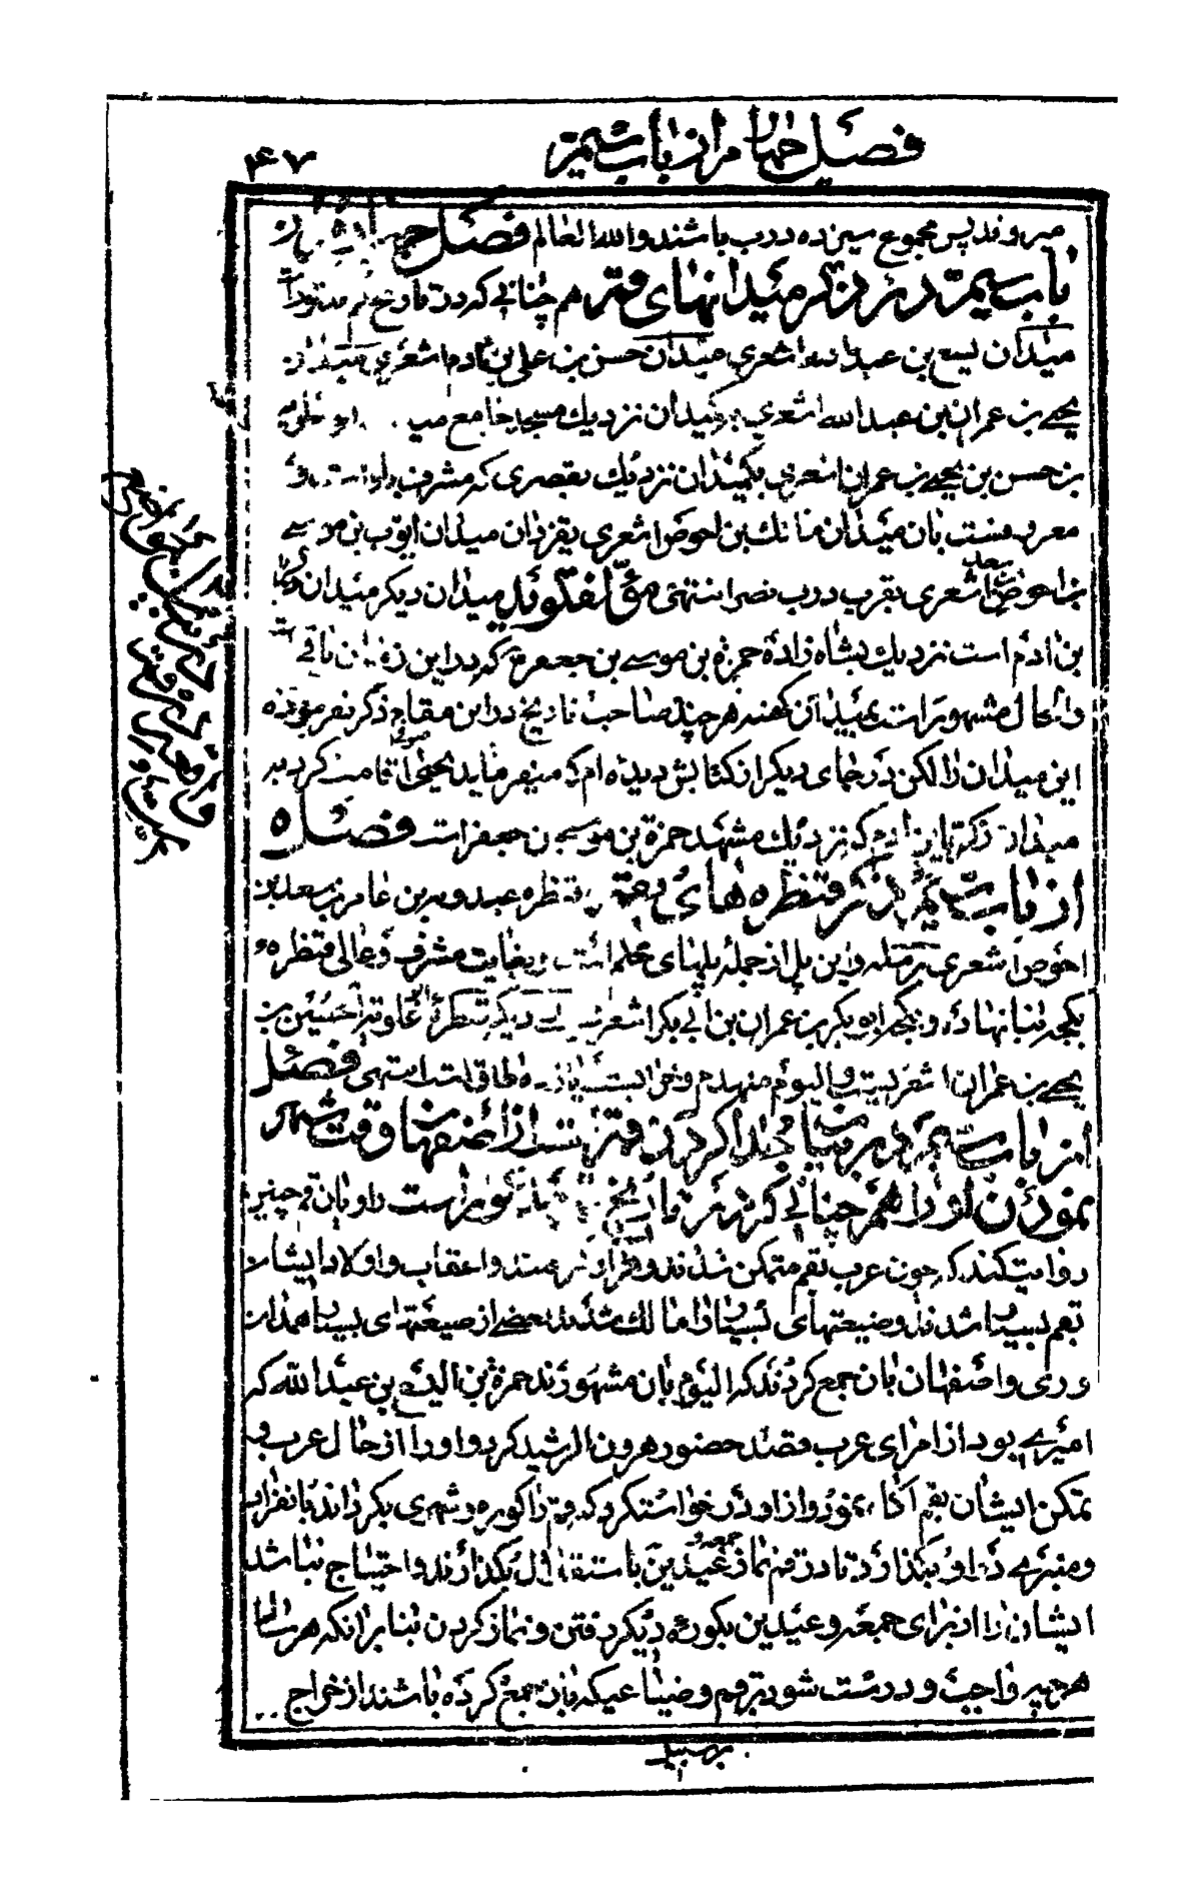 فصل چهارم از باب سیم
۴۷
میروند پس مجموع سیزده درب باشند والله العالم فصل چهارم از
باب سیم در ذکر میدانهای قم چنانی که در تاریخ قم مذکور است
میدان یسع بن عبدالله اشعری میدان حسن بن علی بن آدم اشعری میدان
یحیی بن عمران بن عبدالله اشعری میدان نزدیک مسجد جامع ابو علویه
بن حسن بن یحیی بن عمران اشعری یکمیدان نزدیک بقصری که مشرف بر او است و
معروفست بان میدان مالک بن احوص اشعری بقزدان میدان ایوب بن موسی
بن احوص اشعری بقرب درب نصر انتهی مؤلف گوید میدان دیگر میدان زکریا
بن آدم است نزدیک بشاه زاده حمزه بن موسی بن جعفر که در این زمان باقی است
والحال مشهور است بمیدان کهنه هر چند صاحب تاریخ در این مقام ذکر نفرموده
این میدان را لکن در جای دیگر از کتابش دیده ام که میفرماید یحیی صوفی اقامت کرد بر
میدان زکریا بن آدم که نزدیک مشهد حمزة بن موسی بن جعفر است فصل ۵
از باب سیم در ذکر قنطره های قم قنطره عبدویه بن عامر بن سعد بن
احوص اشعری برمله و این پل از جمله پلهای محکم است و بغایت مشرف و عالی قنطره
بکجه بنا نهاده و بکجه ابوبکر بن عمران بن ابی بکر اشعریست دیگر قنطرۀ ابو علویه حسین بن
یحیی بن عمران اشعریست و الیوم منهدم و خرابست طاق است انتهی فصل
از باب سیم در بیان جدا کردن قم است از اصفهان وقت شهر
نمودن او را هم چنانی که در تاریخ قم مذکور است راویان قم چنین
روایت کنند که چون عرب بقم متمکن شدند و قرار گرفتند و اعقاب و اولاد ایشان
بقم بسیار شدند و ضیعتهای بسیار را مالک شدند بعضی از ضیعتهای بسیار همدان
و ری و اصفهان بان جمع کردند که الیوم بان مشهورند حمزة بن الیسع بن عبدالله که
امیری بود از امرای عرب قصد حضور هرون الرشید کرد و او را از حال عرب و
تمکن ایشان بقم آگاه نمود و از او درخواست کرد که قم را کوره و شهری بگرداند بانفراد
و منبری در او بگذارد تا در قم نماز جمعه و عیدین باستقلال بگذارند و احتیاج نباشد
ایشان را از برای جمعه و عیدین بکورۀ دیگر رفتن و نماز کردن بنا بر آنکه هر سال
هر چه واجب و درست شود بر قم و ضیاعیکه بان جمع کرده باشند از خراج
بر سبیل